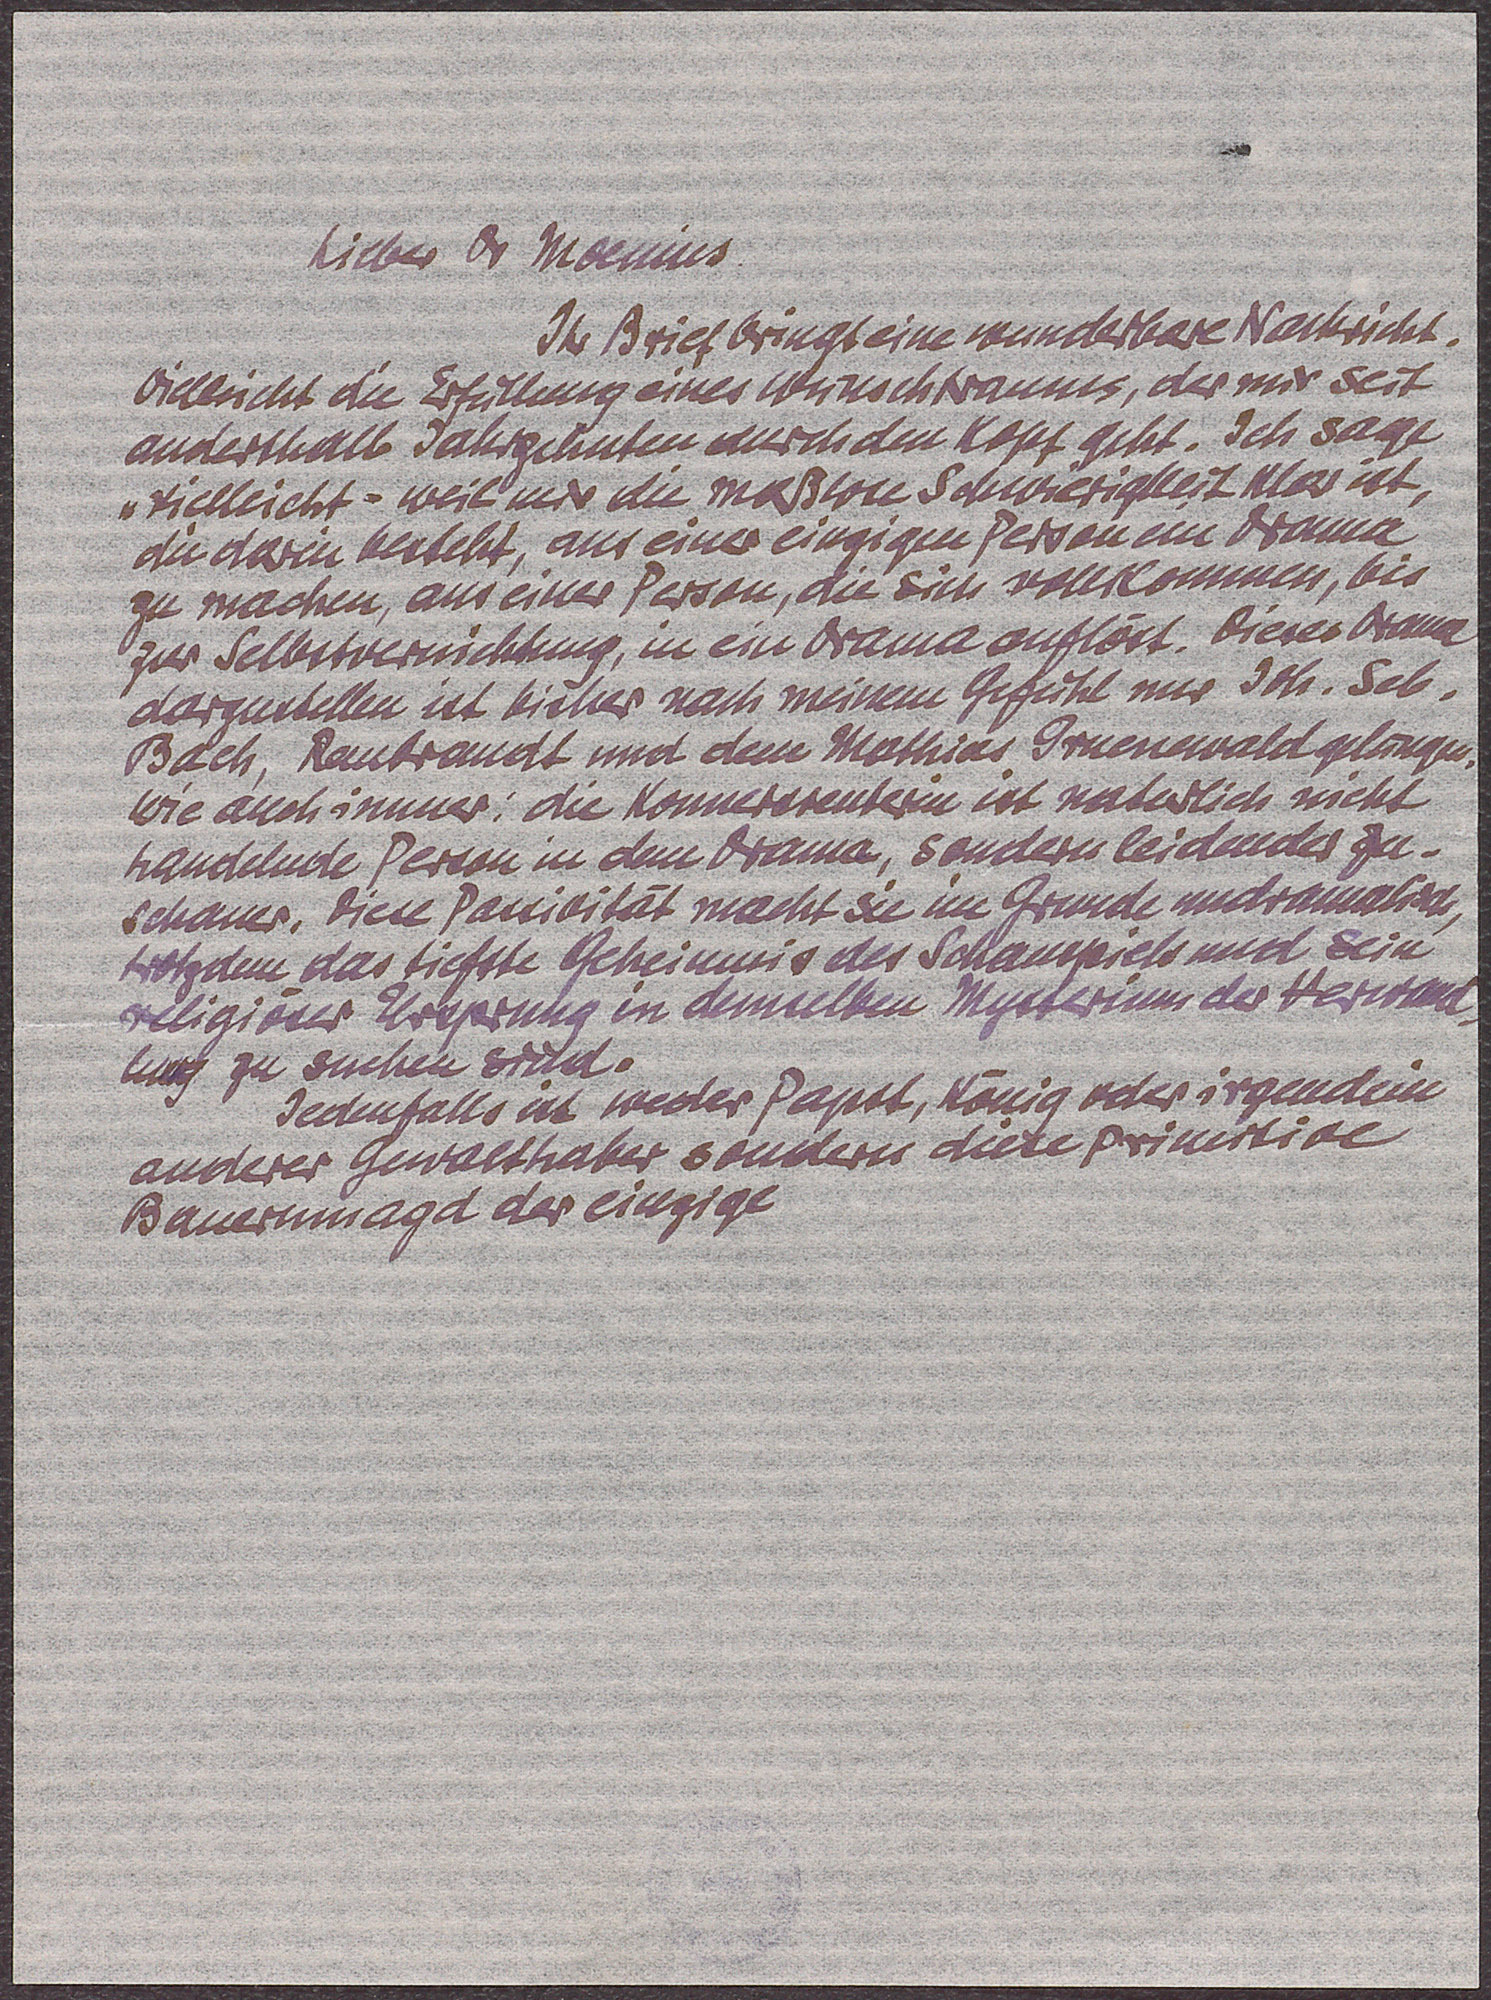 Lieber Dr Moenius
Ihr Brief bringt eine wunderbare Nachricht.
Vielleicht die Erfüllung eines Wunschtraums, der mir seit
anderthalb Jahrzehnten durch den Kopf geht. Ich sage
„vielleicht - weil mir die maßlose Schwierigkeit klar ist,
die darin besteht, aus einer einzigen Person ein Drama
zu machen, aus einer Person, die sich vollkommen, bis
zur Selbstvernichtung, in ein Drama auflöst. Dieses Drama
darzustellen ist bisher nach meinem Gefühl nur Joh. Seb.
Bach, Rembrandt und dem Mathias Gruenewald gelungen.
Wie auch immer: die Konnersreuterin ist natürlich nicht
handelnde Person in dem Drama, sondern leidender Zu-
schauer. Diese Passivität macht sie im Grunde undramatisch,
trotzdem das tiefste Geheimnis des Schauspiels und sein
religiöser Ursprung in demselben Mysterium der Verwand-
lung zu suchen sind.
Jedenfalls ist weder Papst, König oder irgendein
anderer Gewalthaber sondern diese primitive
Bauernmagd der einzige